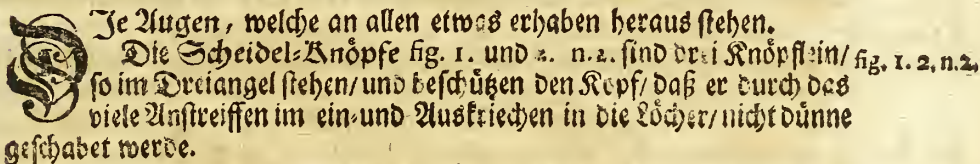 DJe Augen, welche an allen etwas erhaben heraus stehen.
Die Scheidel-Knöpfe fig. 1. und 2. n. 2. sind drei Knöpflein/ fig. 1. 2. n. 2.
so im Dreiangel stehen/ und beschützen den Kopf/ daß er durch das
viele Anstreiffen im ein- und Auskriechen in die Löcher/ nicht dünne
geschabet werde.